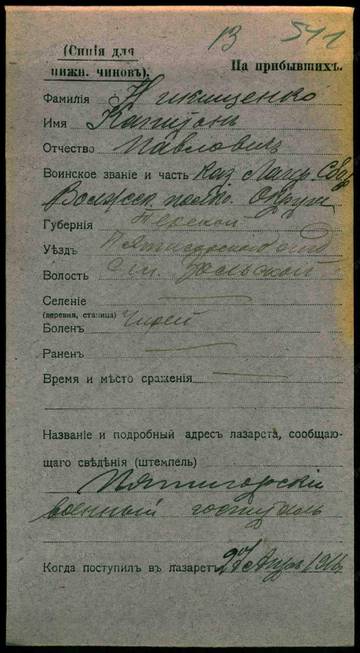 13 541
(Синія для
нижн. чиновъ).
На прибывшихъ.
Фамилія Никищенко
Имя Капитонъ
Отчество Павловичъ
Воинское званіе и часть Каз. Лагр. Сбор
Волжск. полк. Округ
Губернія Терской
Уѣздъ Пятигорскаго отд
Волость Ст. Зольской
Селеніе
(деревня, станица)
Боленъ Чирей
Раненъ
Время и мѣсто сраженія
Названіе и подробный адресъ лазарета, сообщаю-
щаго свѣдѣнія (штемпель)
Пятигорскій
военный госпиталь
Когда поступилъ въ лазаретъ 27 Апр 1916